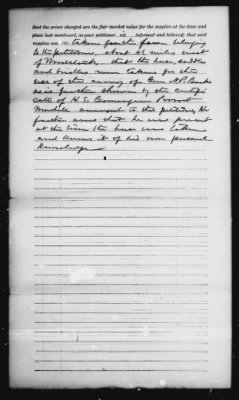 that the prices charged are the fair market value for the supplies at the time and
place last mentioned, as your petitioner is informed and believes; that said
supplies were (6) taken from the farm belonging
to the petitioner, about 2½ miles west
of Woodstock, that the horse, saddle
and bridle were taken for the
use of the army of Gen N. P. Banks
as is further shown by the certifi
cate of H. S. Provost
Marshall annexed to this petition. He
further avers that he was present
at the time the horse was taken
and knows it of his own personal
knowledge